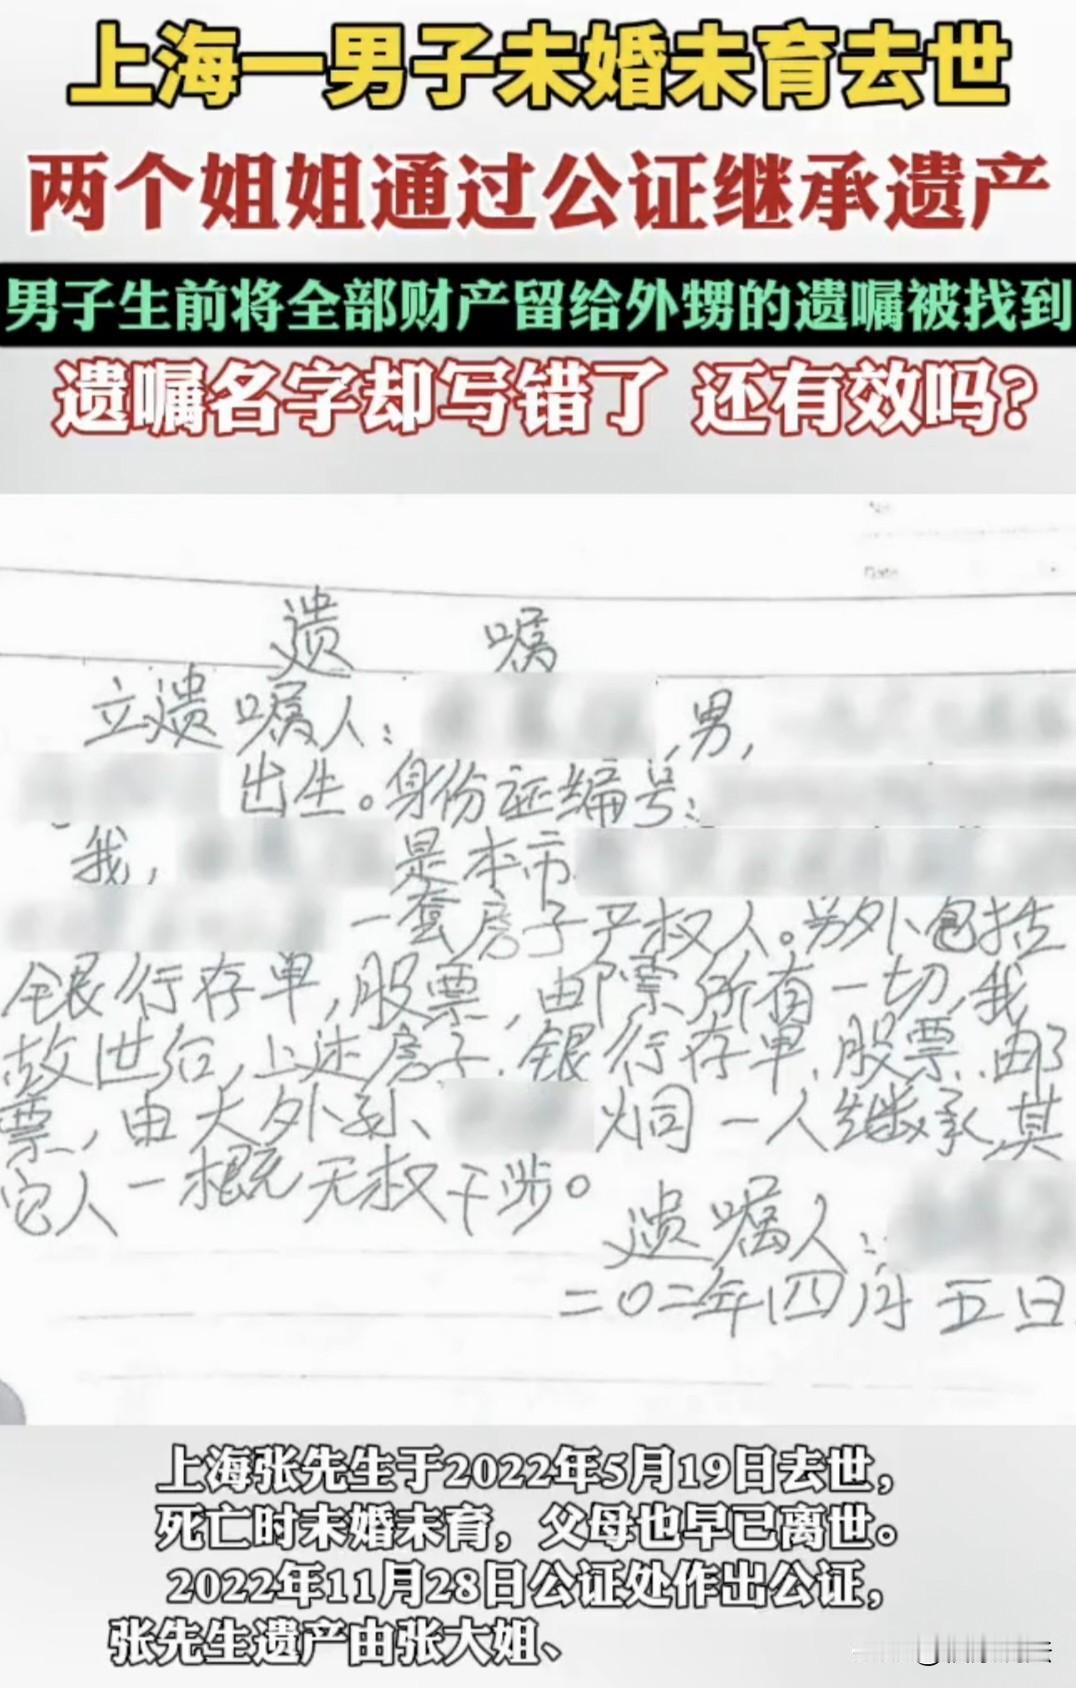 上海一男子未婚未育去世
两个姐姐通过公证继承遗产
男子生前将全部财产留给外甥的遗嘱被找到
遗嘱名字却写错了 还有效吗?
No
Date
遗 嘱
立遗嘱人: ,男,
出生。身份证编号:
我, 是本市
一套房子产权人。另外包括
银行存单,股票,邮票所有一切,我
故世后,上述房子.银行存单.股票.邮
票,由大外孙、 炯一人继承,其
它人一概无权干涉。
遗嘱人:
二〇二年四月五日
上海张先生于2022年5月19日去世,
死亡时未婚未育,父母也早已离世。
2022年11月28日公证处作出公证,
张先生遗产由张大姐、